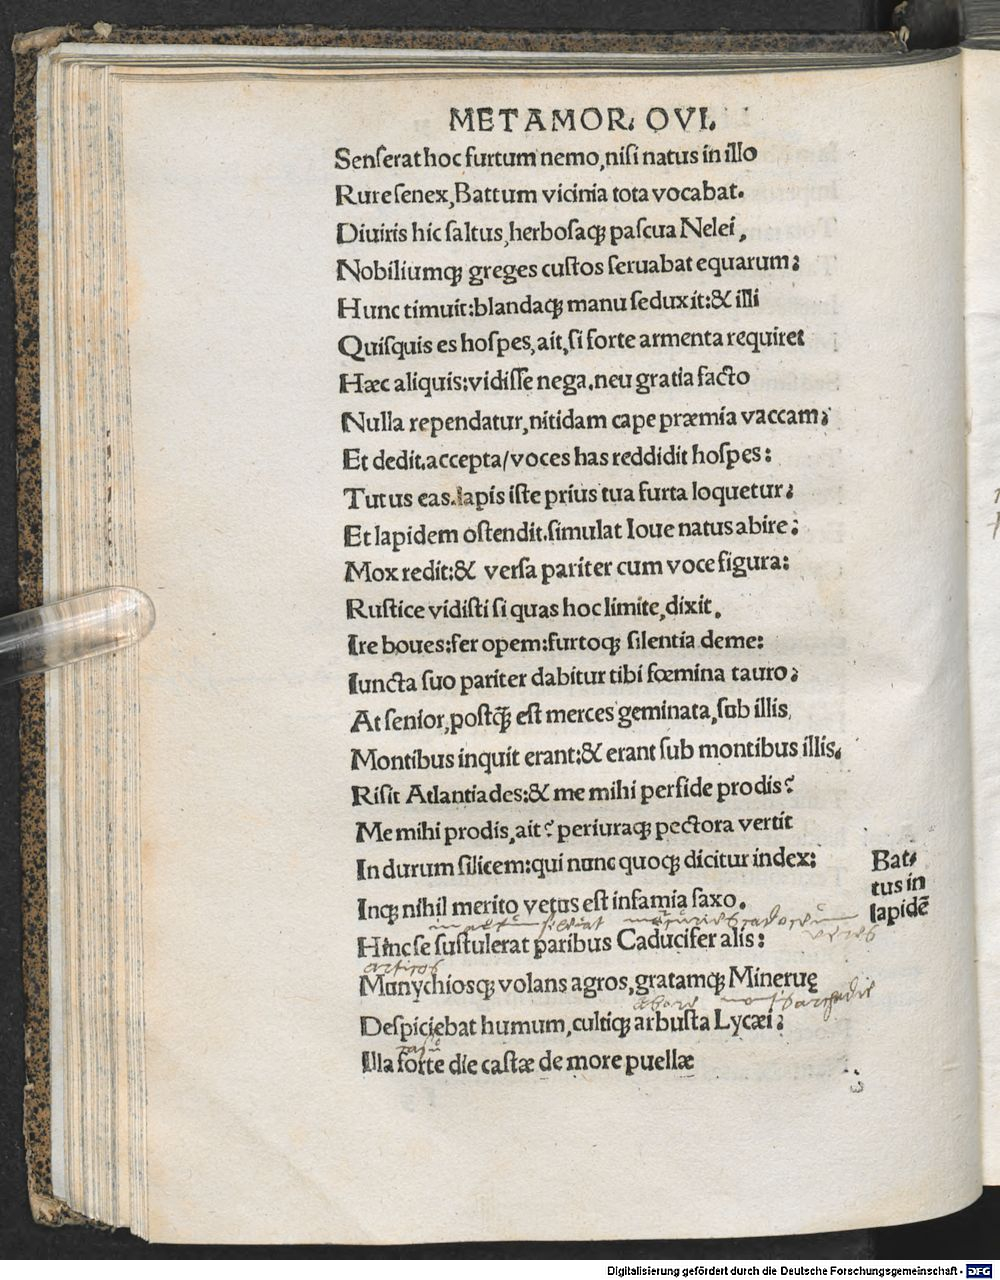 METAMOR. OVI.
Senserat hoc furtum nemo, nisi natus in illo
Rure senex, Battum vicinia tota vocabat.
Diuitis hic saltus, herbosaqꝫ pascua Nelei,
Nobiliumqꝫ greges custos seruabat equarum;
Hunc timuit: blandaqꝫ manu seduxit: & illi
Quisquis es hospes, ait, si forte armenta requiret
Hæc aliquis: vidisse nega. neu gratia facto
Nulla rependatur, nitidam cape præmia vaccam;
Et dedit. accepta/ voces has reddidit hospes:
Tutus eas. lapis iste prius tua furta loquetur;
Et lapidem ostendit. simulat Ioue natus abire;
Mox redit: & versa pariter cum voce figura:
Rustice vidisti si quas hoc limite, dixit.
Ire boues: fer opem: furtoqꝫ silentia deme:
Iuncta suo pariter dabitur tibi fœmina tauro;
At senior, postq̃ est merces geminata, sub illis,
Montibus inquit erant: & erant sub montibus illis.
Risit Atlantiades: & me mihi perfide prodis?
Me mihi prodis, ait? periuraqꝫ pectora vertit
In durum silicem: qui nunc quoqꝫ dicitur index:
Bat-
tus in
lapidẽ
Inqꝫ nihil merito vetus est infamia saxo.
Hinc se sustulerat paribus Caducifer alis:
Munychiosqꝫ volans agros, gratamqꝫ Mineruę
Despiciebat humum, cultiqꝫ arbusta Lycæi;
Illa forte die castæ de more puellæ
Digitalisierung gefördert durch die Deutsche Forschungsgemeinschaft - DFG